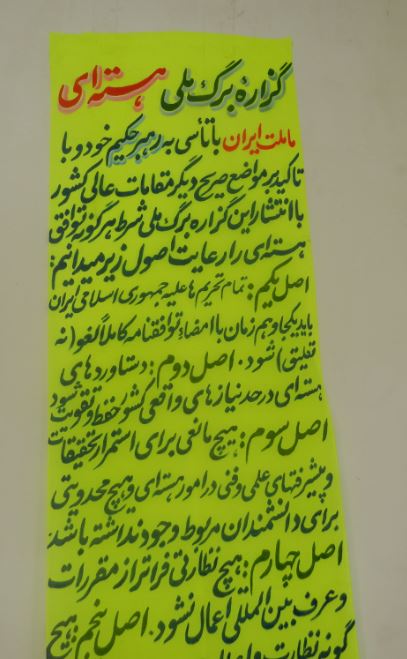 گزاره برگ ملی هسته‌ای
ما ملت ایران با تأسی به رهبر حکیم خود و با
تاکید بر مواضع صریح دیگر مقامات عالی کشور
با انتشار این گزاره برگ ملی شرط هرگونه توافق
هسته‌ای را رعایت اصول زیر میدانیم:
اصل یکم: تمام تحریم ها علیه جمهوری اسلامی ایران
باید یکجا و هم زمان با امضاء توافقنامه کاملاً لغو (نه
تعلیق) شود. اصل دوم: دستاوردهای
هسته‌ای در حد نیازهای واقعی کشور حفظ و تقویت شود
اصل سوم: هیچ مانعی برای استمرار تحقیقات
و پیشرفتهای علمی و فنی در امور هسته‌ای و هیچ محدودیتی
برای دانشمندان مربوط وجود نداشته باشد
اصل چهارم: هیچ نظارتی فراتر از مقررات
و عرف بین المللی اعمال نشود. اصل پنجم: هیچ
گونه نظارت